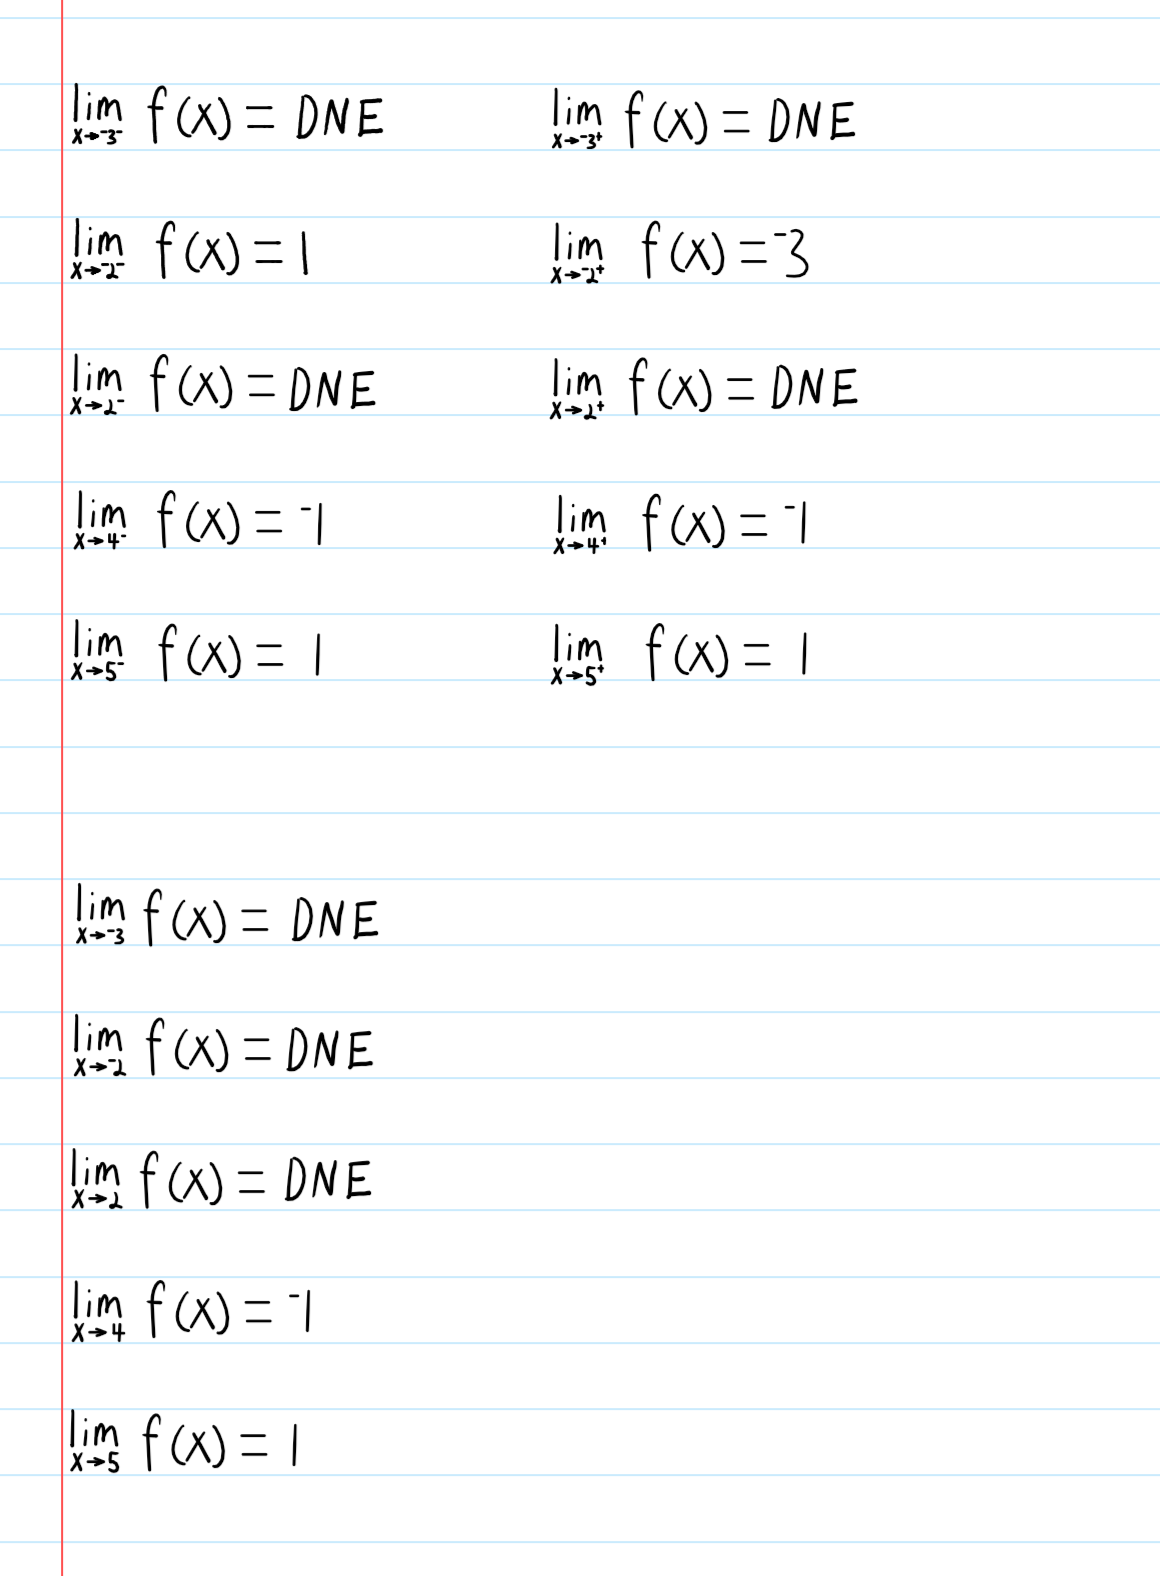 lim x→⁻3⁻ f(x) = DNE lim x→⁻3⁺ f(x) = DNE
lim x→⁻2⁻ f(x) = 1 lim x→⁻2⁺ f(x) = ⁻3
lim x→2⁻ f(x) = DNE lim x→2⁺ f(x) = DNE
lim x→4⁻ f(x) = ⁻1 lim x→4⁺ f(x) = ⁻1
lim x→5⁻ f(x) = 1 lim x→5⁺ f(x) = 1
lim x→⁻3 f(x) = DNE
lim x→⁻2 f(x) = DNE
lim x→2 f(x) = DNE
lim x→4 f(x) = ⁻1
lim x→5 f(x) = 1